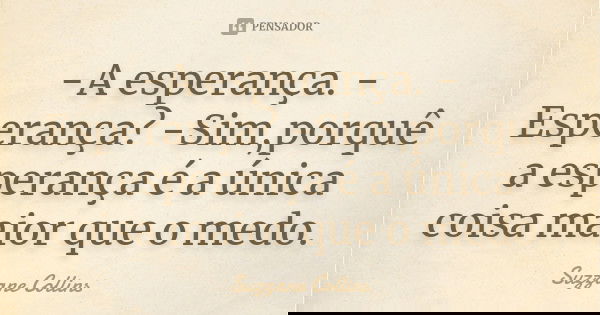 PENSADOR
-A esperança. -
Esperança? -Sim, porquê
a esperança é a única
coisa maior que o medo.
Suzzane Collins